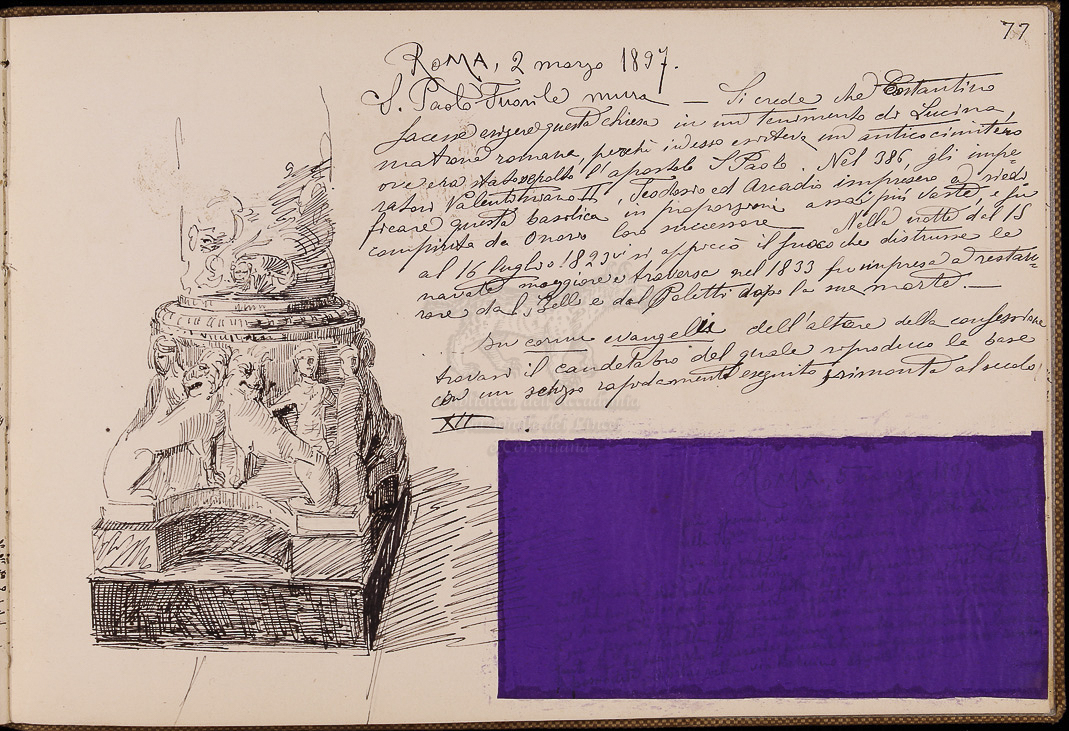 77
ROMA, 2 marzo 1897.
S. Paolo Fuori le mura — Si crede che Costantino
facesse erigere questa chiesa in un tenimento di Lucina,
matrona romana, perchè in desso esisteva un antico cimitero
ove era stato sepolto l'apostolo S Paolo. Nel 386, gli impe-
ratori Valentiniano II, Teodosio ed Arcadio impresero a riedi
ficare questa basilica in proporzioni assai più vaste, e fu
compiuta da Onorio loro successore — Nella notte del 15
al 16 luglio 1823 vi si appiccò il fuoco che distrusse le
navate maggiore e traversa nel 1833 fu impresa a restau-
rare dal Belli e dal Poletti dopo la sua morte. —
In cornu evangelii dell'altare della confessione
trovasi il candelabro del quale riproduco la base
con un schizzo rapidamente eseguito, rimonta al secolo
XII — .
Biblioteca dell'Accademia
Nazionale dei Lincei
e Corsiniana